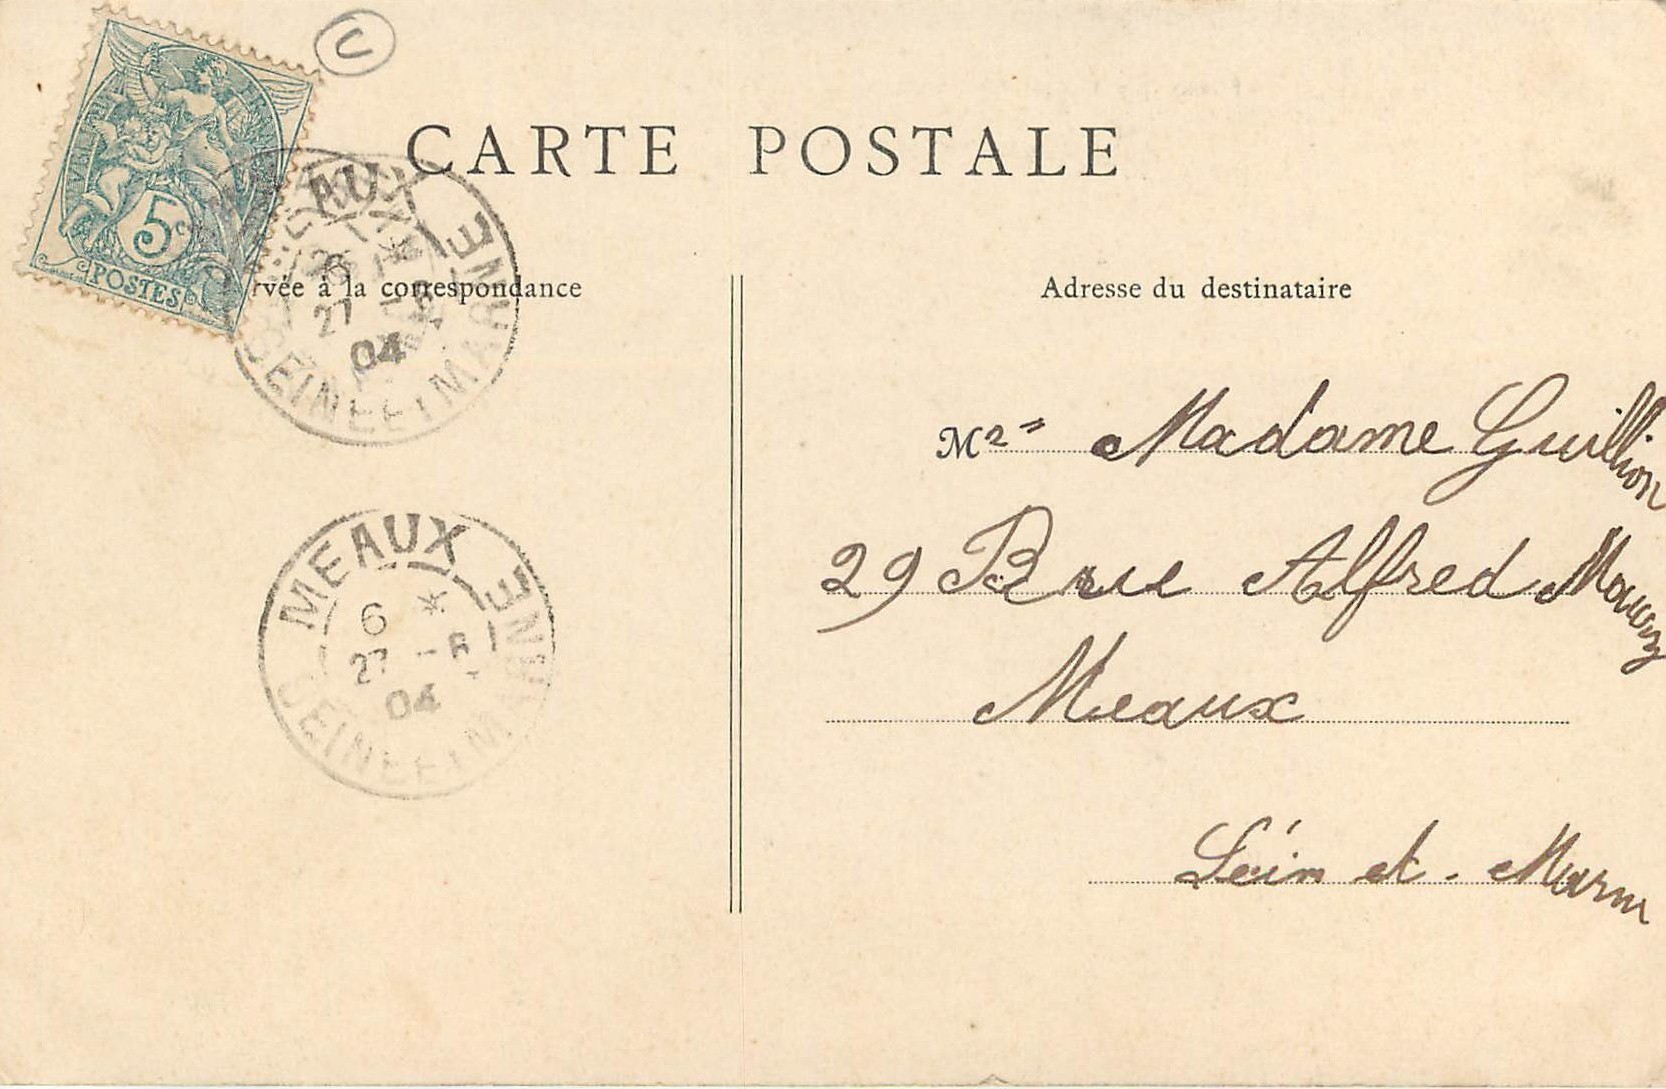 U
5c
POSTES
CARTE POSTALE
rvée à la correspondance
Adresse du destinataire
AUX
27
04
SEINE ET MARNE
MEAUX
6 *
27 -6
04
SEINE ET MARNE
M Madame Guillion
29 Rue Alfred
Meaux
Sein et - Marn